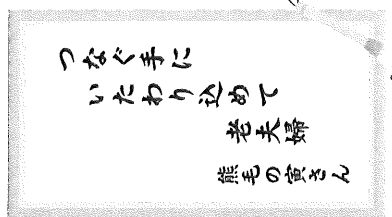 つなぐ手に
いたわり込めて
老夫婦
熊毛の寅さん